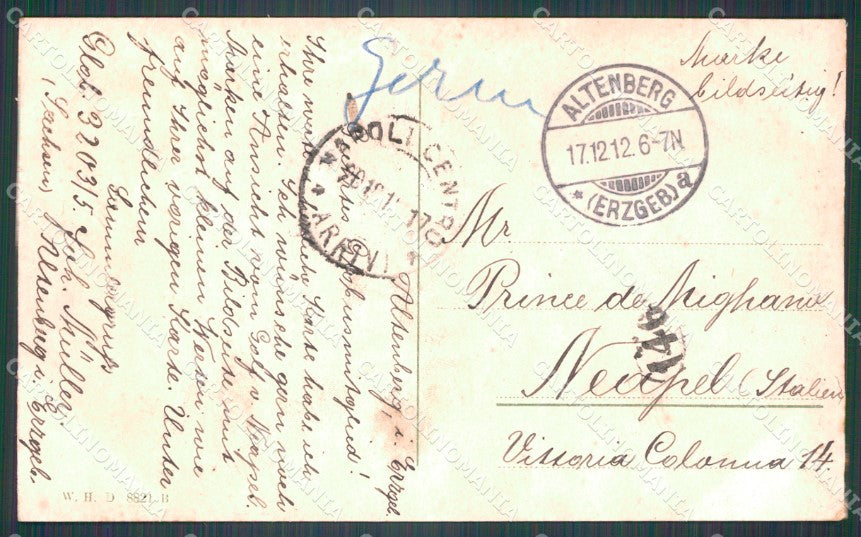 Marke
bildseitig!
Germ
ALTENBERG
17.12.12.6-7N
*(ERZGEB)a
NAPOLI CENTRO
(ARRIVI)
Mr.
Prince de Mignano
Neapel (Italien
Vittoria Colonna 14.
146
Altenberg, i. Erzgeb.
Ihre Karte habe ich
erhalten. Ich wünsche gern noch
eine Ansicht vom Golf v. Neapel.
Marken auf der Bildseite mit
möglichst kleinen Werten wie
auf Ihrer vorigen Karte. Unter
freundlichem
Sammlergruß
Glob. 3203/5. Joh. Müller,
(Sachsen) Altenberg i. Erzgeb.
W. H. D 8821.B
CARTOLINOMANIA